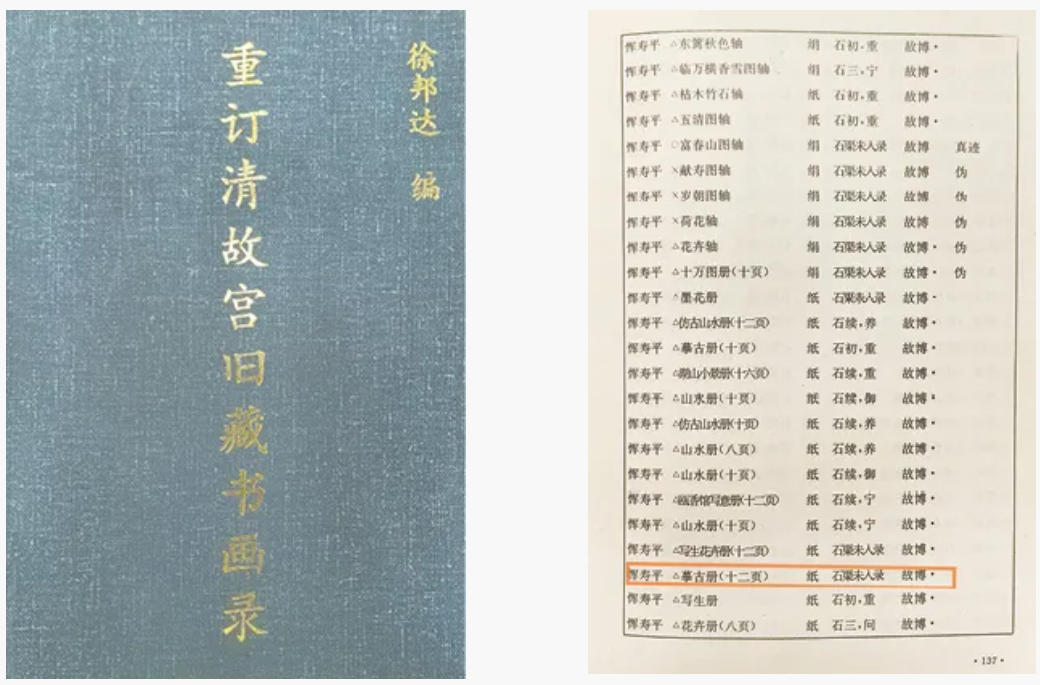 徐邦达 编
重订清故宫旧藏书画录
恽寿平 △东篱秋色轴 绢 石初,重 故博·
恽寿平 △临万横香雪图轴 绢 石三,宁 故博·
恽寿平 △枯木竹石轴 纸 石初,重 故博·
恽寿平 △五清图轴 纸 石初,重 故博·
恽寿平 ○富春山图轴 绢 石渠未入录 故博 真迹
恽寿平 ×献寿图轴 绢 石渠未入录 故博 伪
恽寿平 ×岁朝图轴 绢 石渠未入录 故博 伪
恽寿平 ×荷花轴 绢 石渠未入录 故博 伪
恽寿平 △花卉轴 绢 石渠未入录 故博· 伪
恽寿平 △十万图册(十页) 绢 石渠未入录 故博· 伪
恽寿平 △墨花册 纸 石渠未入录 故博·
恽寿平 △仿古山水册(十二页) 纸 石续,养 故博·
恽寿平 △摹古册(十页) 纸 石初,重 故博·
恽寿平 △湖山小景册(十六页) 纸 石续,重 故博·
恽寿平 △山水册(十页) 纸 石续,御 故博·
恽寿平 △仿古山水册(十页) 纸 石续,养 故博·
恽寿平 △山水册(八页) 纸 石续,养 故博·
恽寿平 △山水册(十页) 纸 石续,御 故博·
恽寿平 △瓯香馆写意册(十二页) 纸 石续,宁 故博·
恽寿平 △山水册(十页) 纸 石续,宁 故博·
恽寿平 △写生花卉册(十二页) 纸 石渠未入录 故博·
恽寿平 △摹古册(十二页) 纸 石渠未入录 故博·
恽寿平 △写生册 纸 石初,重 故博·
恽寿平 △花卉册(八页) 纸 石三,问 故博·
·137·